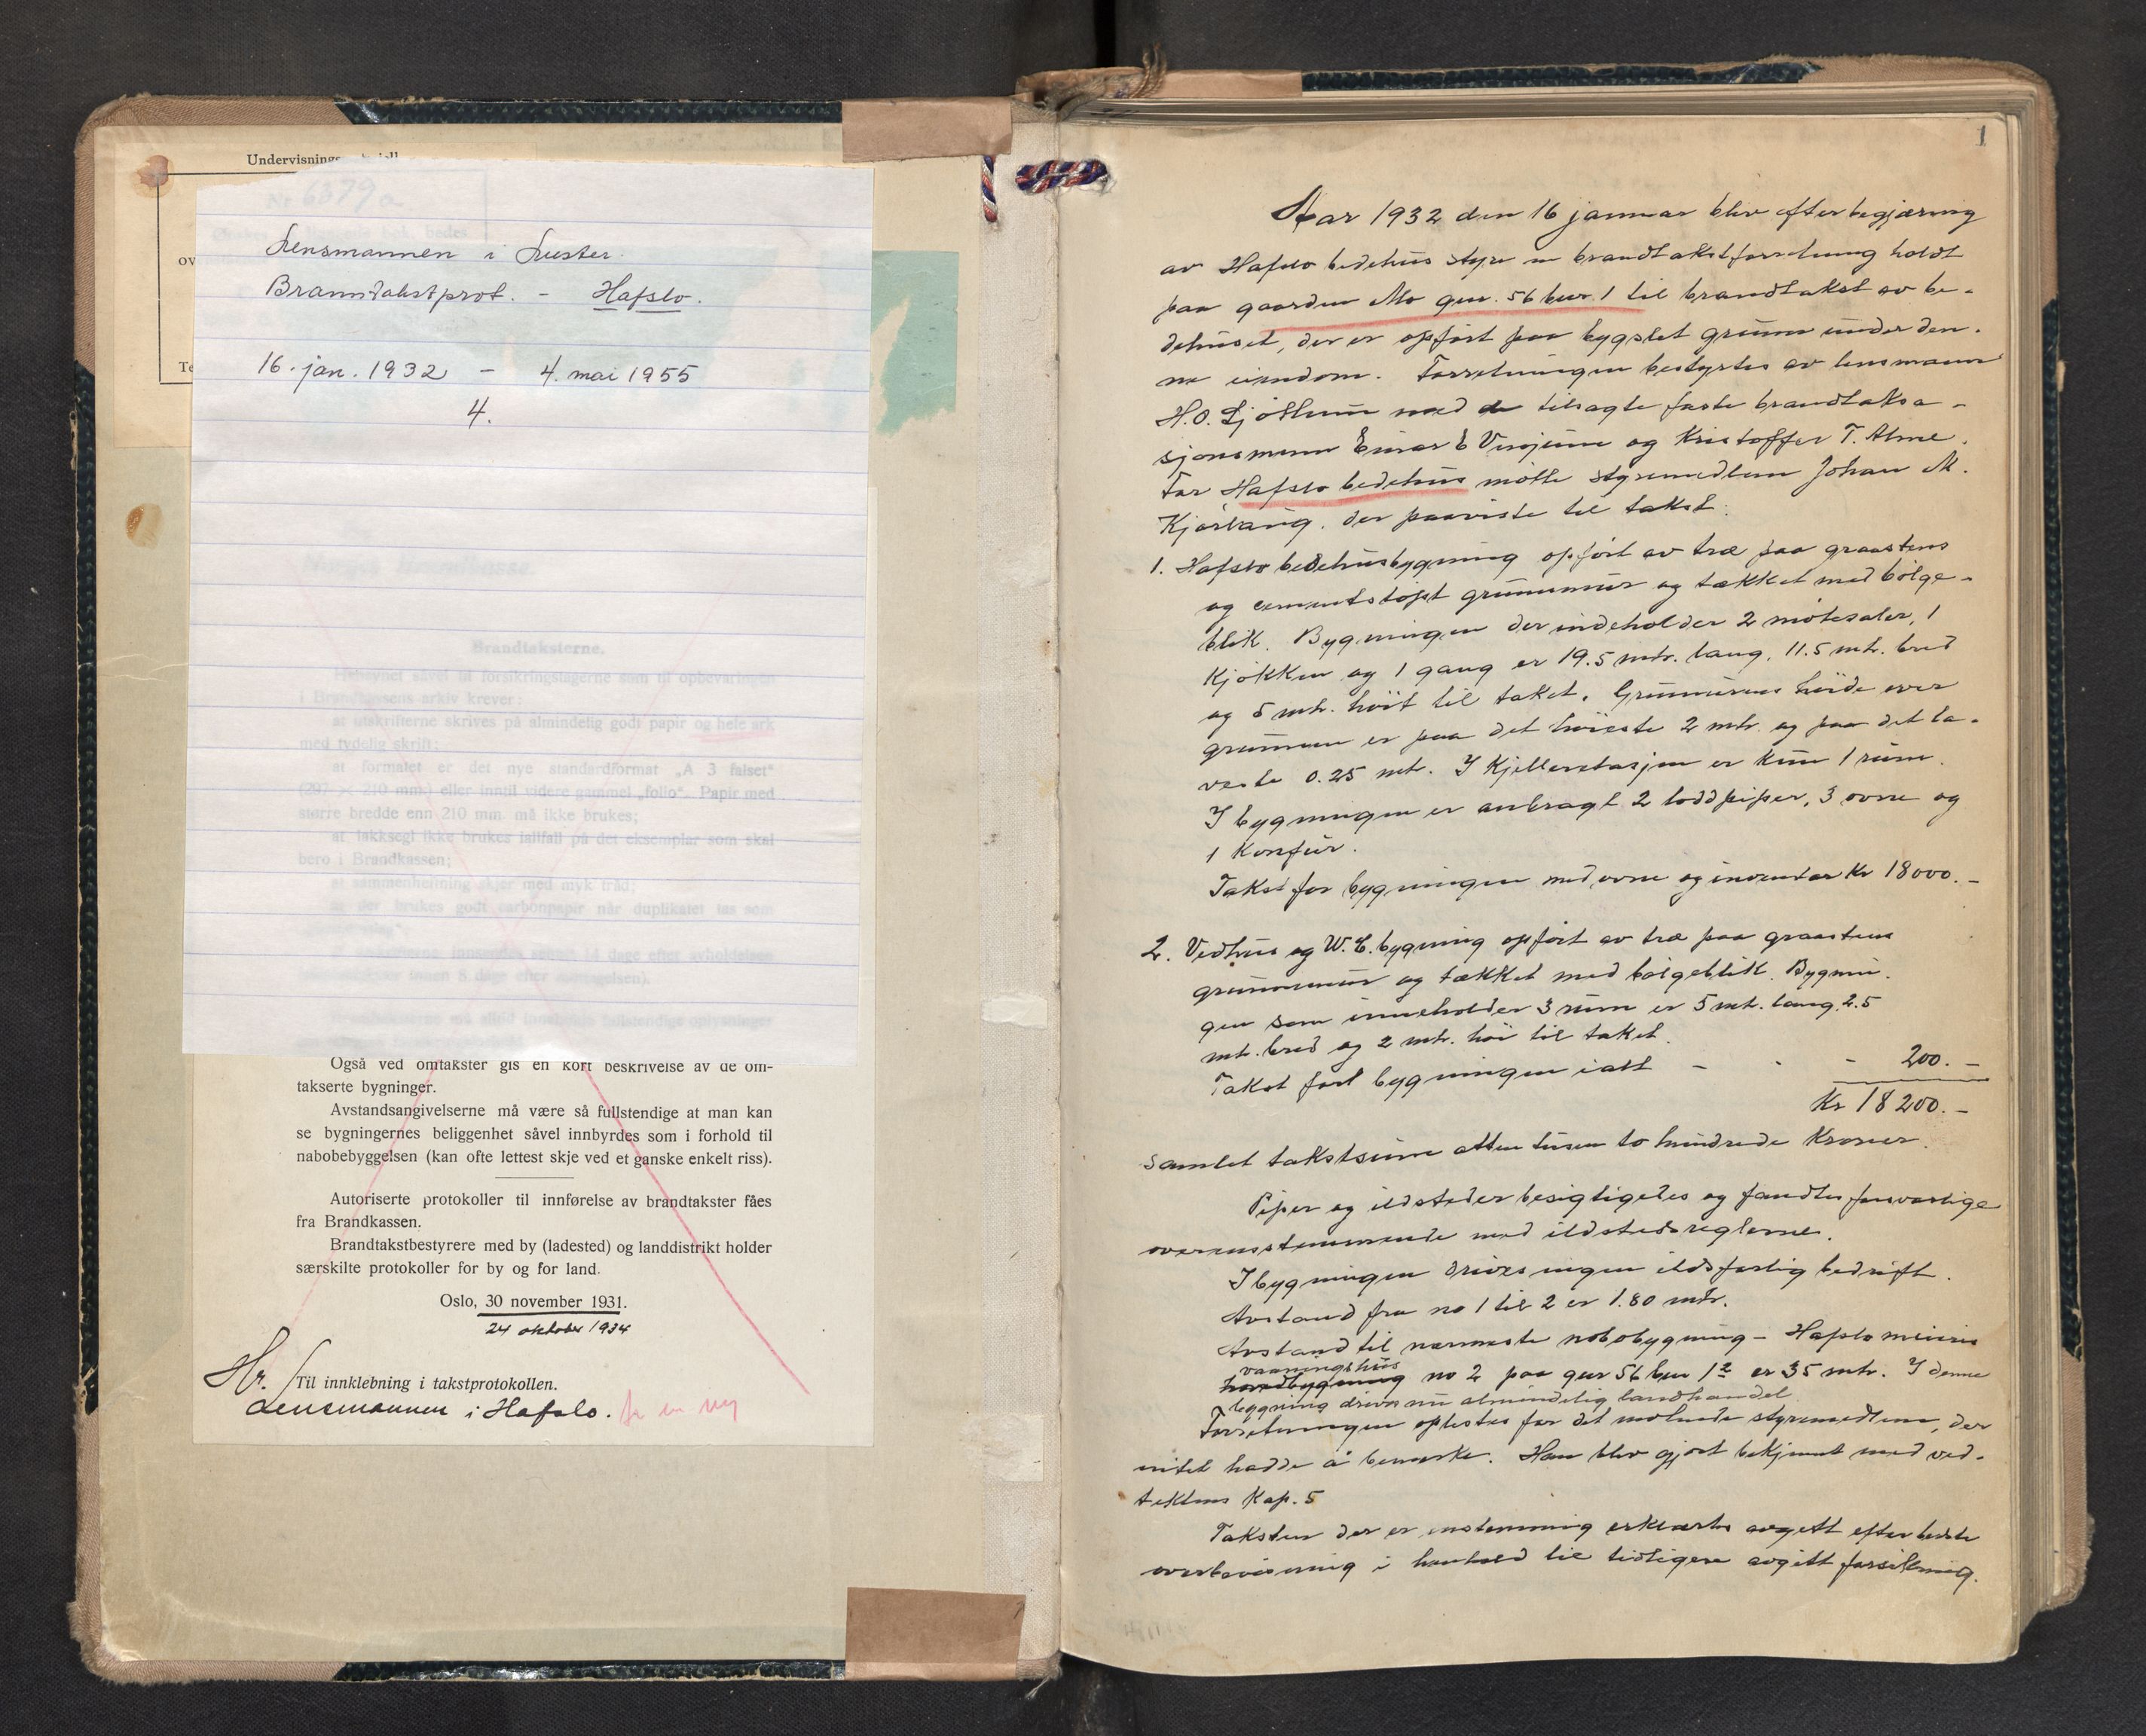 Undervisnings
Nr 6379a
ov
Te
Lensmannen i Luster.
Branntakstprot. - Hafslo.
16. jan. 1932 - 4. mai 1955
4.
Norges Brandkasse.
Brandtaksterne.
Hensynet såvel til forsikringstagerne som til opbevaringen
i Brandkassens arkiv krever:
at utskrifterne skrives på almindelig godt papir og hele ark
med tydelig skrift;
at formatet er det nye standardformat „A 3 falset“
(297 × 210 mm.) eller inntil videre gammel „folio“. Papir med
større bredde enn 210 mm. må ikke brukes;
at lakksegl ikke brukes iallfall på det eksemplar som skal
bero i Brandkassen;
at sammenheftning skjer med myk tråd;
at der brukes godt carbonpapir når duplikatet tas som
14 dage efter avholdelsen
innen 8 dage efter
må alltid fullstendige oplysninger
Også ved omtakster gis en kort beskrivelse av de om-
takserte bygninger.
Avstandsangivelserne må være så fullstendige at man kan
se bygningernes beliggenhet såvel innbyrdes som i forhold til
nabobebyggelsen (kan ofte lettest skje ved et ganske enkelt riss).
Autoriserte protokoller til innførelse av brandtakster fåes
fra Brandkassen.
Brandtakstbestyrere med by (ladested) og landdistrikt holder
særskilte protokoller for by og for land.
Oslo, 30 november 1931.
24 oktober 1934
Hr.
Til innklebning i takstprotokollen.
Lensmannen i Hafslo. en ny
1
Aar 1932 den 16 januar blev efter begjæring
av Hafslo bedehus styre en brandtakstforretning holdt
paa gaarden Mo gnr. 56 bnr. 1 til brandtakst av be-
dehuset, der er opført paa bygslet grunn under den-
ne eiendom. Forretningen bestyrtes av lensmann
H.O. Sjøthun med de tilsagte faste brandtaksa-
sjonsmenn Einar E Vinjeum og Kristoffer T. Alme.
For Hafslo bedehus møtte styremedlem Johan M.
Kjørlaug. der paaviste til takst:
1. Hafslo bedehusbygning opført av træ paa graastens
og cementstøpt grunnmur og tækket med bølge-
blik. Bygningen der indeholder 2 møtesaler, 1
kjøkken og 1 gang er 19.5 mtr. lang, 11.5 mtr. bred
og 5 mtr. høit til taket. Grunmurens høide over
grunnen er paa det høieste 2 mtr. og paa det la-
veste 0.25 mtr. I kjelleretasjen er kun 1 rum.
I bygningen er anbragt 2 loddpiper, 3 ovne og
1 komfur.
Takst for bygningen med ovne og inventar Kr 18000.-
2. Vedhus og W.C. bygning opført av træ paa graastens
grunnmur og tækket med bølgeblik. Bygnin-
gen som inneholder 3 rum er 5 mtr. lang, 2.5
mtr. bred og 2 mtr. høi til taket.
Takst for bygningen i alt - - - 200.-
Kr 18200.-
Samlet takstsum atten tusen to hundrede Kroner.
Piper og ildsteder besigtigedes og fandtes forsvarlige
overensstemmende med ildstedsreglerne.
I bygningen drives ingen ildsfarlig bedrift.
Avstand fra no 1 til 2 er 1.80 mtr.
Avstand til nærmeste nabobygning - Hafslo meieris
vaaningshus
hovedbygning no 2 paa gnr 56 bnr 12 er 35 mtr. I denne
bygning drives nu almindelig landhandel.
Forretningen oplestes for det møtende styremedlem, der
intet hadde å bemerke. Han blev gjort bekjennt med ved-
tektens Kap. 5
Taksten der er enstemmig erklærtes avgitt efter bedste
overbevisning i henhold til tidligere avgitt forsikring.